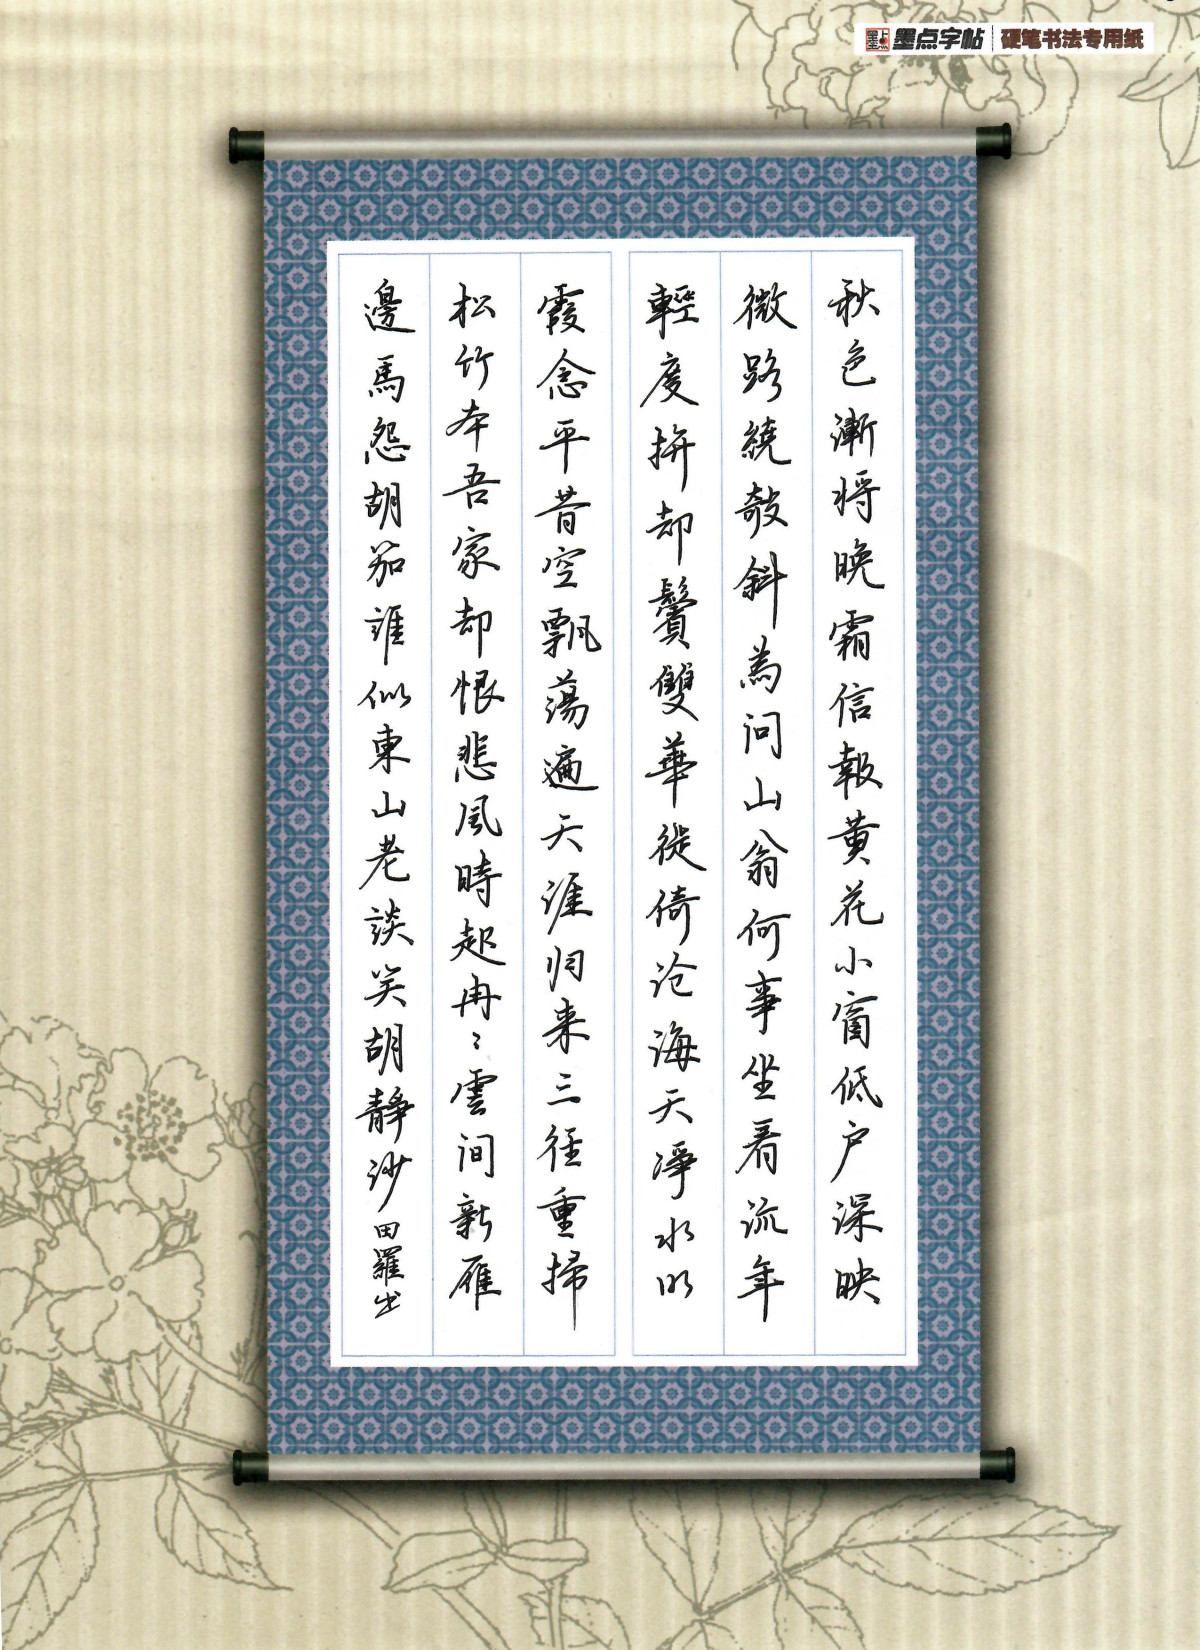 墨点字帖 硬笔书法专用纸
秋色漸将晚霜信報黄花小窗低户深映
微路繞敧斜為问山翁何事坐看流年
輕度拚却鬢雙華徙倚沧海天凈水明
霞念平昔空飘蕩遍天涯归来三径重掃
松竹本吾家却恨悲風時起冉〻雲间新雁
邊馬怨胡笳誰似東山老談笑胡静沙
田羅书